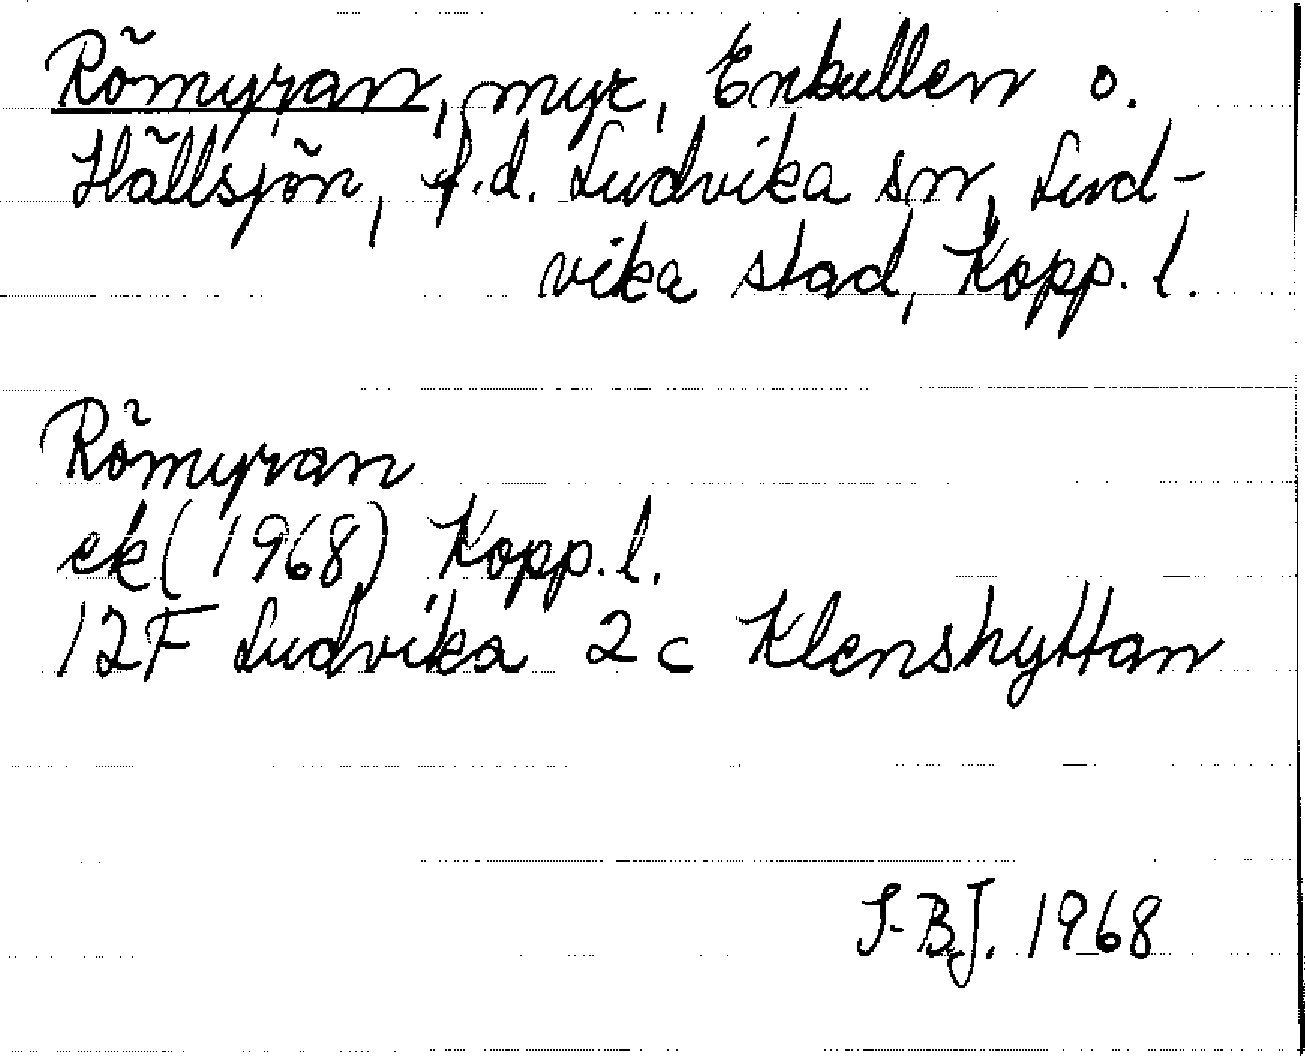 Römyran, myr, Enkullen o.
Hällsjön, f.d. Ludvika sn, Lud-
vika stad, Kopp. l.
Römyran
ek (1968) Kopp. l.
12F Ludvika 2c Klenshyttan
S-B.J. 1968